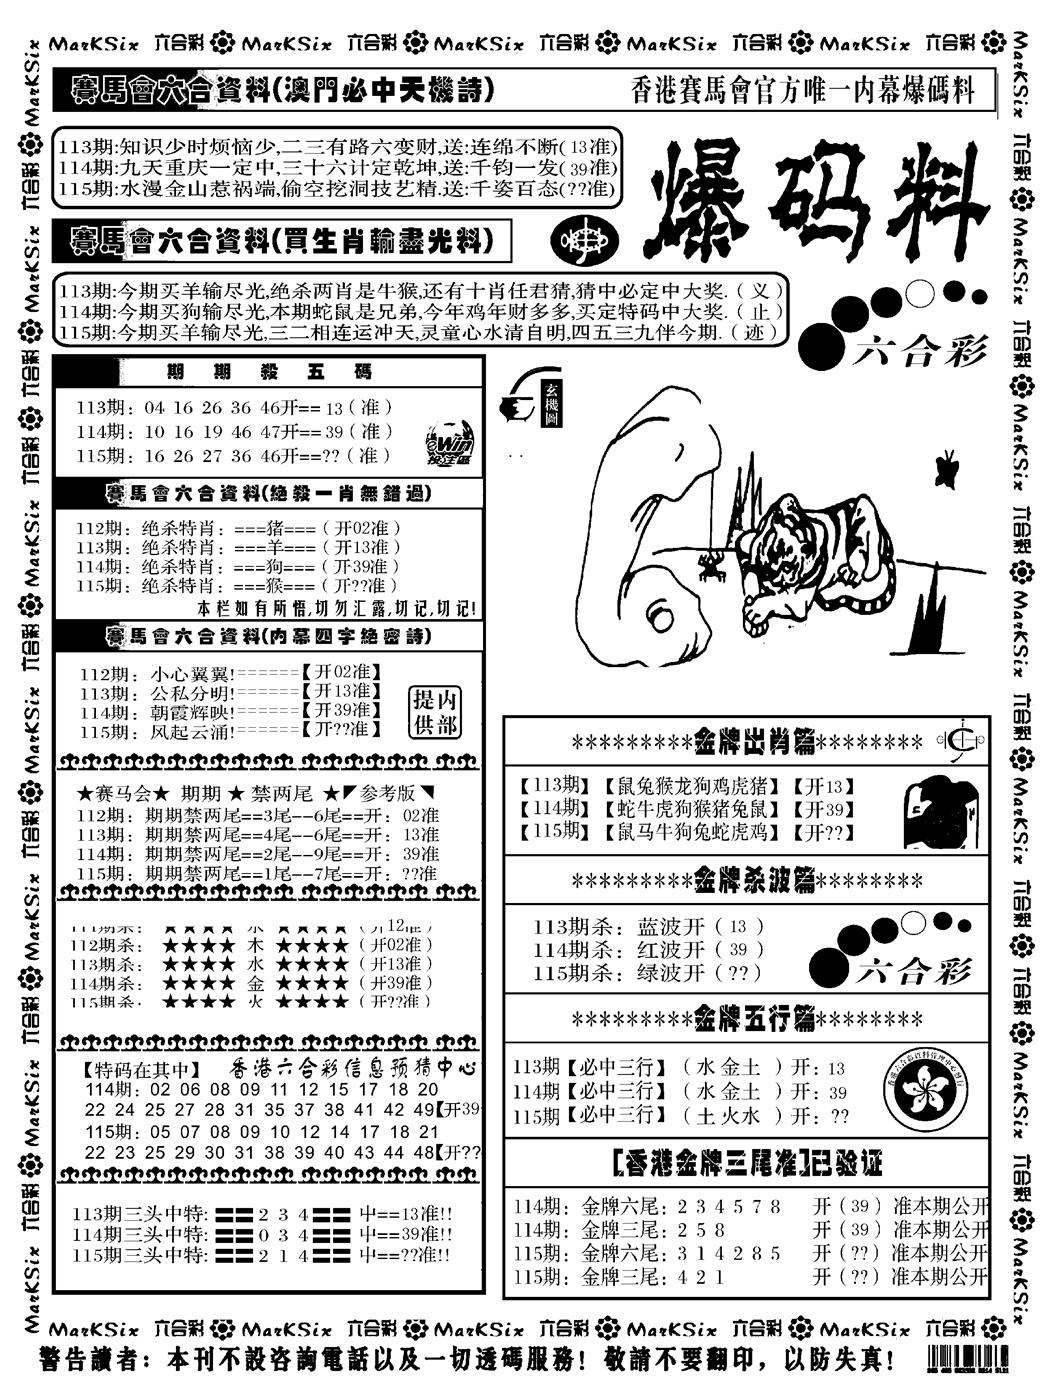 MarKSix 六合彩 MarKSix 六合彩 MarKSix 六合彩 MarKSix 六合彩 MarKSix 六合彩
賽馬會六合資料(澳門必中天機詩)
香港賽馬會官方唯一内幕爆碼料
113期:知识少时烦恼少,二三有路六变财,送:连绵不断(13准)
114期:九天重庆一定中,三十六计定乾坤,送:千钧一发(39准)
115期:水漫金山惹祸端,偷空挖洞技艺精,送:千姿百态(??准)
爆码料
賽馬會六合資料(買生肖輸盡光料)
113期:今期买羊输尽光,绝杀两肖是牛猴,还有十肖任君猜,猜中必定中大奖.(义)
114期:今期买狗输尽光,本期蛇鼠是兄弟,今年鸡年财多多,买定特码中大奖.(止)
115期:今期买羊输尽光,三二相连运冲天,灵童心水清自明,四五三九伴今期.(迹)
六合彩
期期殺五碼
113期: 04 16 26 36 46开==13(准)
114期: 10 16 19 46 47开==39(准)
115期: 16 26 27 36 46开==??(准)
eWin
投注區
玄機圖
賽馬會六合資料(絕殺一肖無錯過)
112期: 绝杀特肖: ===猪===(开02准)
113期: 绝杀特肖: ===羊===(开13准)
114期: 绝杀特肖: ===狗===(开39准)
115期: 绝杀特肖: ===猴===(开??准)
本栏如有所悟,切勿汇露,切记,切记!
賽馬會六合資料(内幕四字絕密詩)
112期: 小心翼翼!======【开02准】
113期: 公私分明!======【开13准】
114期: 朝霞辉映!======【开39准】
115期: 风起云涌!======【开??准】
提内
供部
★赛马会★ 期期 ★ 禁两尾 ★◤参考版◥
112期: 期期禁两尾==3尾--6尾==开: 02准
113期: 期期禁两尾==4尾--6尾==开: 13准
114期: 期期禁两尾==2尾--9尾==开: 39准
115期: 期期禁两尾==1尾--7尾==开: ??准
111期杀: ★★★★ 水 ★★★★(开12准)
112期杀: ★★★★ 木 ★★★★(开02准)
113期杀: ★★★★ 水 ★★★★(开13准)
114期杀: ★★★★ 金 ★★★★(开39准)
115期杀: ★★★★ 火 ★★★★(开??准)
【特码在其中】 香港六合彩信息预猜中心
114期: 02 06 08 09 11 12 15 17 18 20
22 24 25 27 28 31 35 37 38 41 42 49【开39
115期: 05 07 08 09 10 12 14 17 18 21
22 23 25 29 30 31 38 39 40 43 44 48【开??
113期三头中特: 〓〓2 3 4〓〓 中==13准!!
114期三头中特: 〓〓0 3 4〓〓 中==39准!!
115期三头中特: 〓〓2 1 4〓〓 中==??准!!
*********金牌出肖篇********
【113期】【鼠兔猴龙狗鸡虎猪】【开13】
【114期】【蛇牛虎狗猴猪兔鼠】【开39】
【115期】【鼠马牛狗兔蛇虎鸡】【开??】
*********金牌杀波篇********
113期杀: 蓝波开(13)
114期杀: 红波开(39)
115期杀: 绿波开(??)
六合彩
*********金牌五行篇********
113期【必中三行】(水金土)开: 13
114期【必中三行】(水金土)开: 39
115期【必中三行】(土火水)开: ??
[香港金牌三尾准]已验证
114期: 金牌六尾: 2 3 4 5 7 8 开(39)准本期公开
114期: 金牌三尾: 2 5 8 开(39)准本期公开
115期: 金牌六尾: 3 1 4 2 8 5 开(??)准本期公开
115期: 金牌三尾: 4 2 1 开(??)准本期公开
MarKSix 六合彩 MarKSix 六合彩 MarKSix 六合彩 MarKSix 六合彩 MarKSix 六合彩
警告讀者: 本刊不設咨詢電話以及一切透碼服務! 敬請不要翻印, 以防失真!